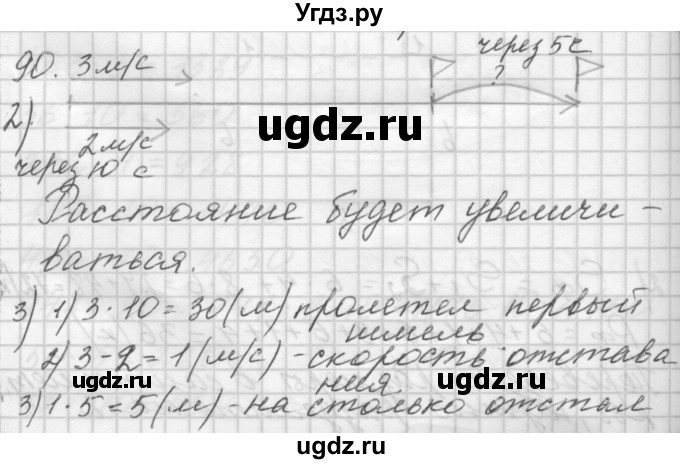 Угдз.ру
90. 3 м/с через 5с
?
2)
2 м/с
через 10 с
ugdz.ru
Расстояние будет увеличи-
ваться.
3) 1) 3·10=30(м) пролетел первый
шмель
2) 3-2=1(м/с)-скорость отстава
ния
3) 1·5=5(м)-на столько отстал
ugdz.ru
ugdz.ru
ugdz.ru